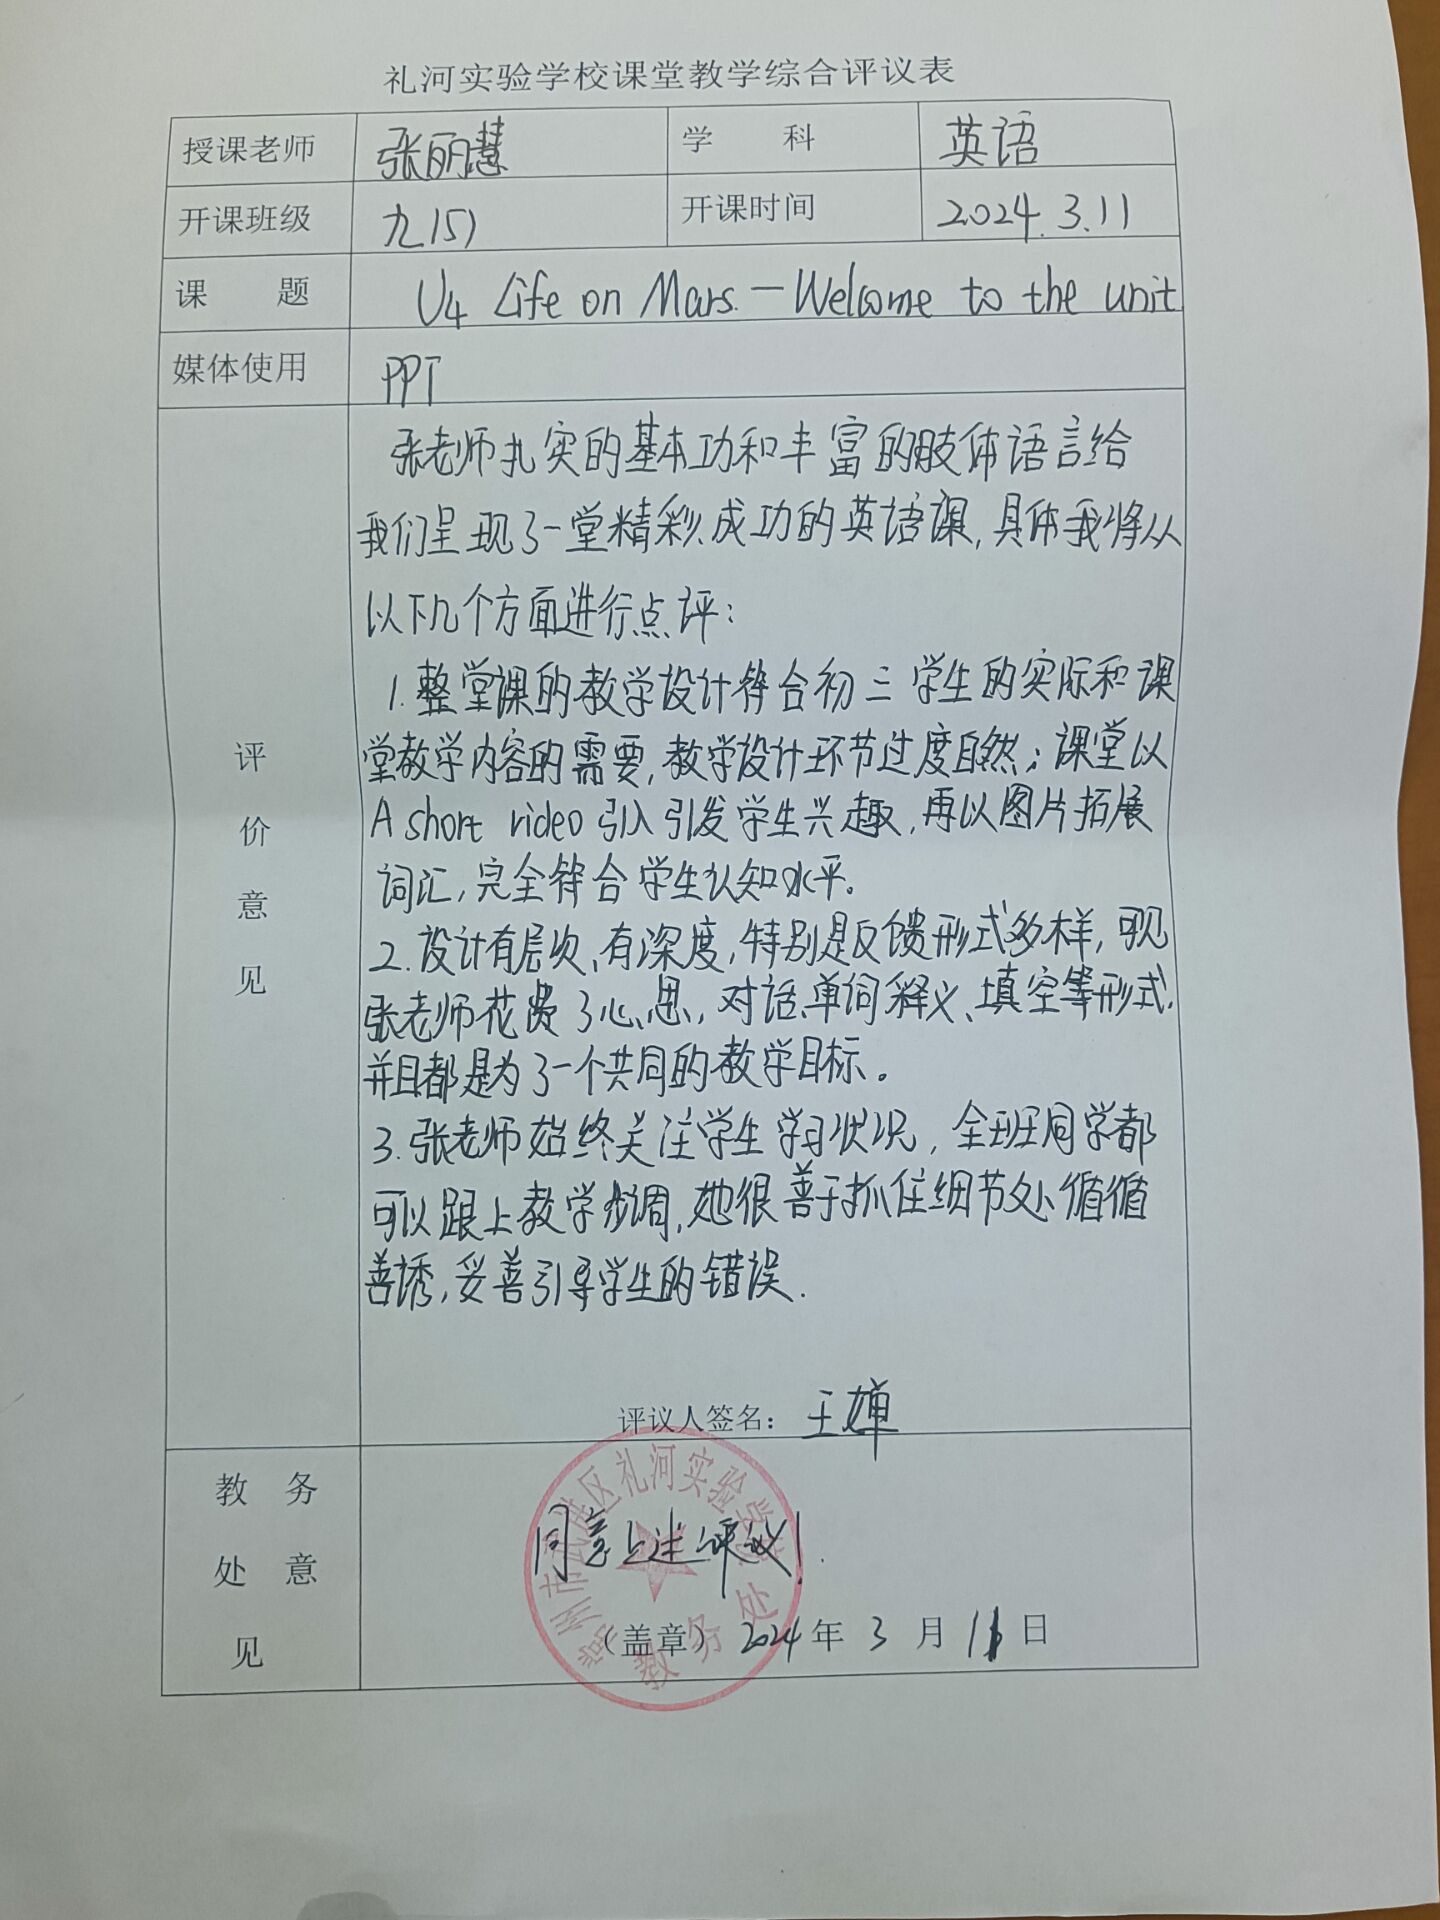 礼河实验学校课堂教学综合评议表
授课老师 张丽慧 学 科 英语
开课班级 九(5) 开课时间 2024.3.11
课 题 U4 Life on Mars.—Welcome to the unit
媒体使用 PPT
评价意见
张老师扎实的基本功和丰富的肢体语言给
我们呈现了一堂精彩、成功的英语课,具体我将从
以下几个方面进行点评:
1.整堂课的教学设计符合初三学生的实际和课
堂教学内容的需要,教学设计环节过度自然;课堂以
A short video引入引发学生兴趣,再以图片拓展
词汇,完全符合学生认知水平。
2.设计有层次、有深度,特别是反馈形式多样,可见
张老师花费了心思,对话、单词释义、填空等形式,
并且都是为了一个共同的教学目标。
3.张老师始终关注学生学习状况,全班同学都
可以跟上教学步调,她很善于抓住细节处循循
善诱,妥善引导学生的错误.
评议人签名: 王婵
教务处意见
同意上述评议!
(盖章) 2024年 3 月 11 日
常州市武进区礼河实验学校
教务处